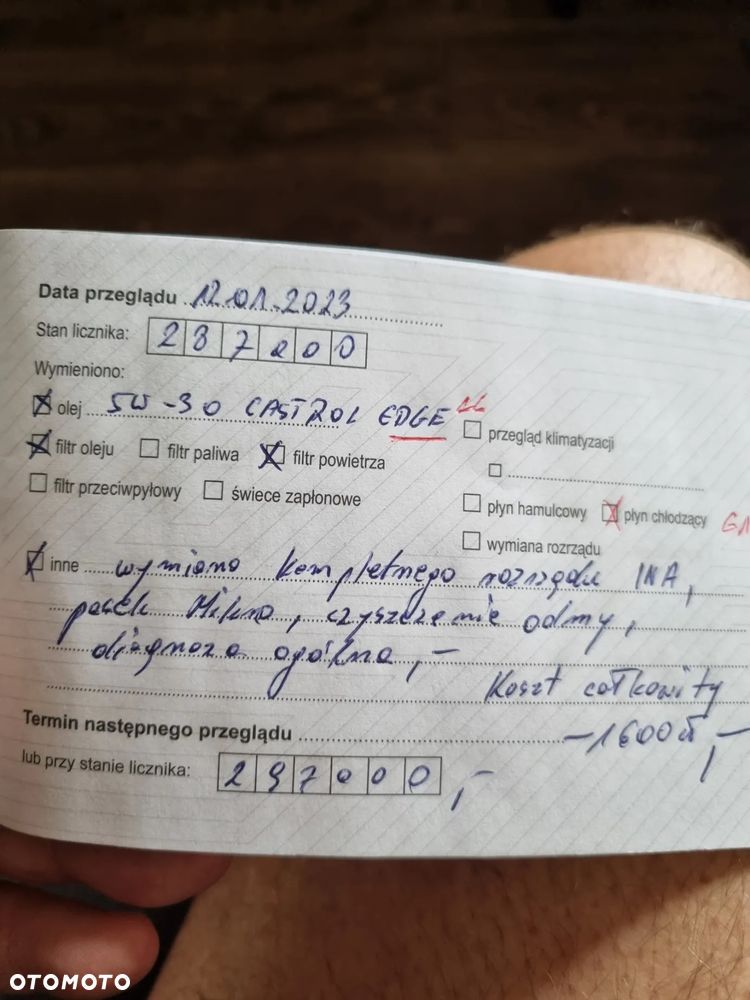 Data przeglądu 12.01.2023
Stan licznika: 287200
Wymieniono:
olej 5W-30 CASTROL EDGE LL
przegląd klimatyzacji
filtr oleju filtr paliwa filtr powietrza
filtr przeciwpyłowy świece zapłonowe
płyn hamulcowy płyn chłodzący
wymiana rozrządu
inne wymiana kompletnego rozrządu INA,
pasek Mikro, czyszczenie odmy,
diagnoza ogólna,-
Koszt całkowity
Termin następnego przeglądu -1600zł,-
lub przy stanie licznika: 297000,-
OTOMOTO